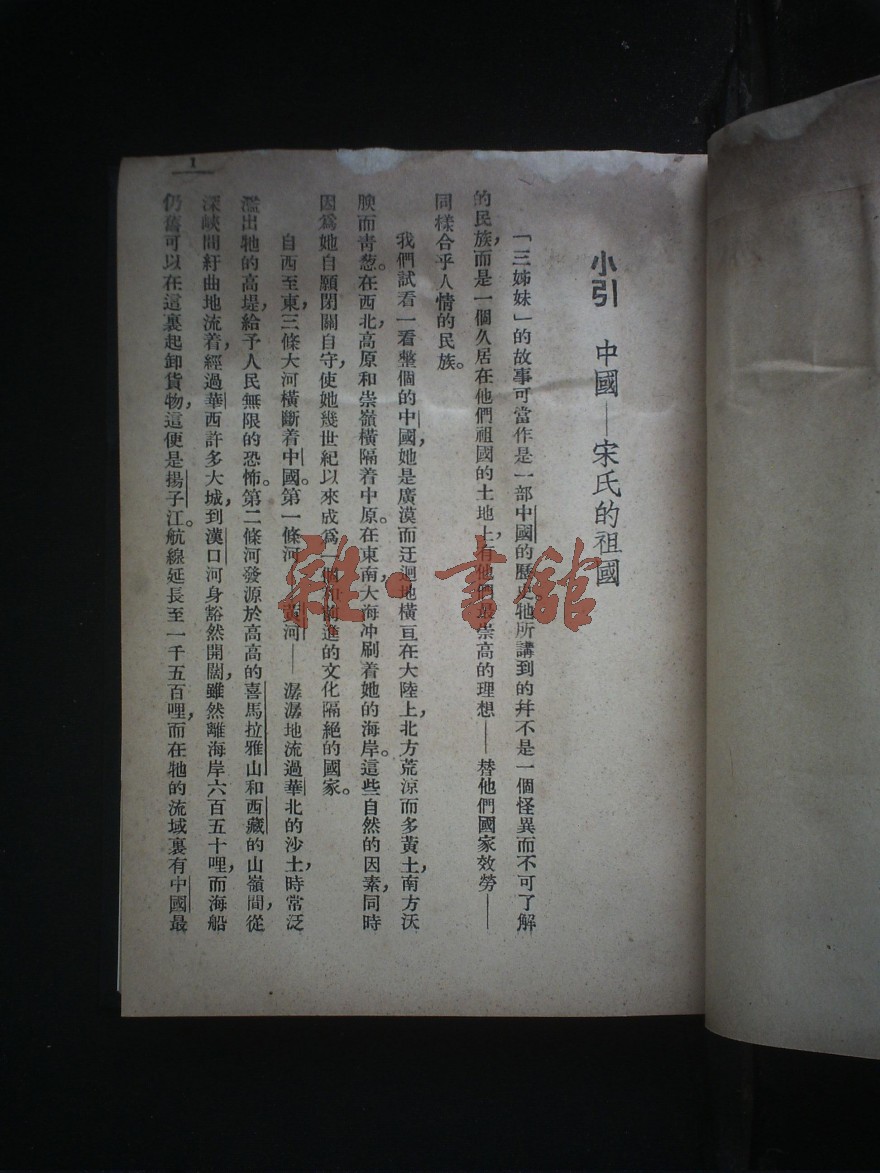 小引　中國——宋氏的祖國
「三姊妹」的故事可當作是一部中國的歷史牠所講到的幷不是一個怪異而不可了解
的民族,而是一個久居在他們祖國的土地上,有他們最崇高的理想——替他們國家效勞——
同樣合乎人情的民族。
我們試看一看整個的中國,她是廣漠而迂迴地橫亘在大陸上,北方荒涼而多黃土,南方沃
腴而青葱。在西北,高原和崇嶺橫隔着中原。在東南,大海冲刷着她的海岸。這些自然的因素,同時
因爲她自願閉關自守,使她幾世紀以來成爲一個和前進的文化隔絕的國家。
自西至東,三條大河橫斷着中國。第一條河——黃河——潺潺地流過華北的沙土,時常泛
濫出牠的高堤,給予人民無限的恐怖。第二條河發源於高高的喜馬拉雅山和西藏的山嶺間,從
深峽間紆曲地流着,經過華西許多大城,到漢口河身豁然開闊,雖然離海岸六百五十哩,而海船
仍舊可以在這裏起卸貨物,這便是揚子江。航線延長至一千五百哩,而在牠的流域裏有中國最
1
雜·書館